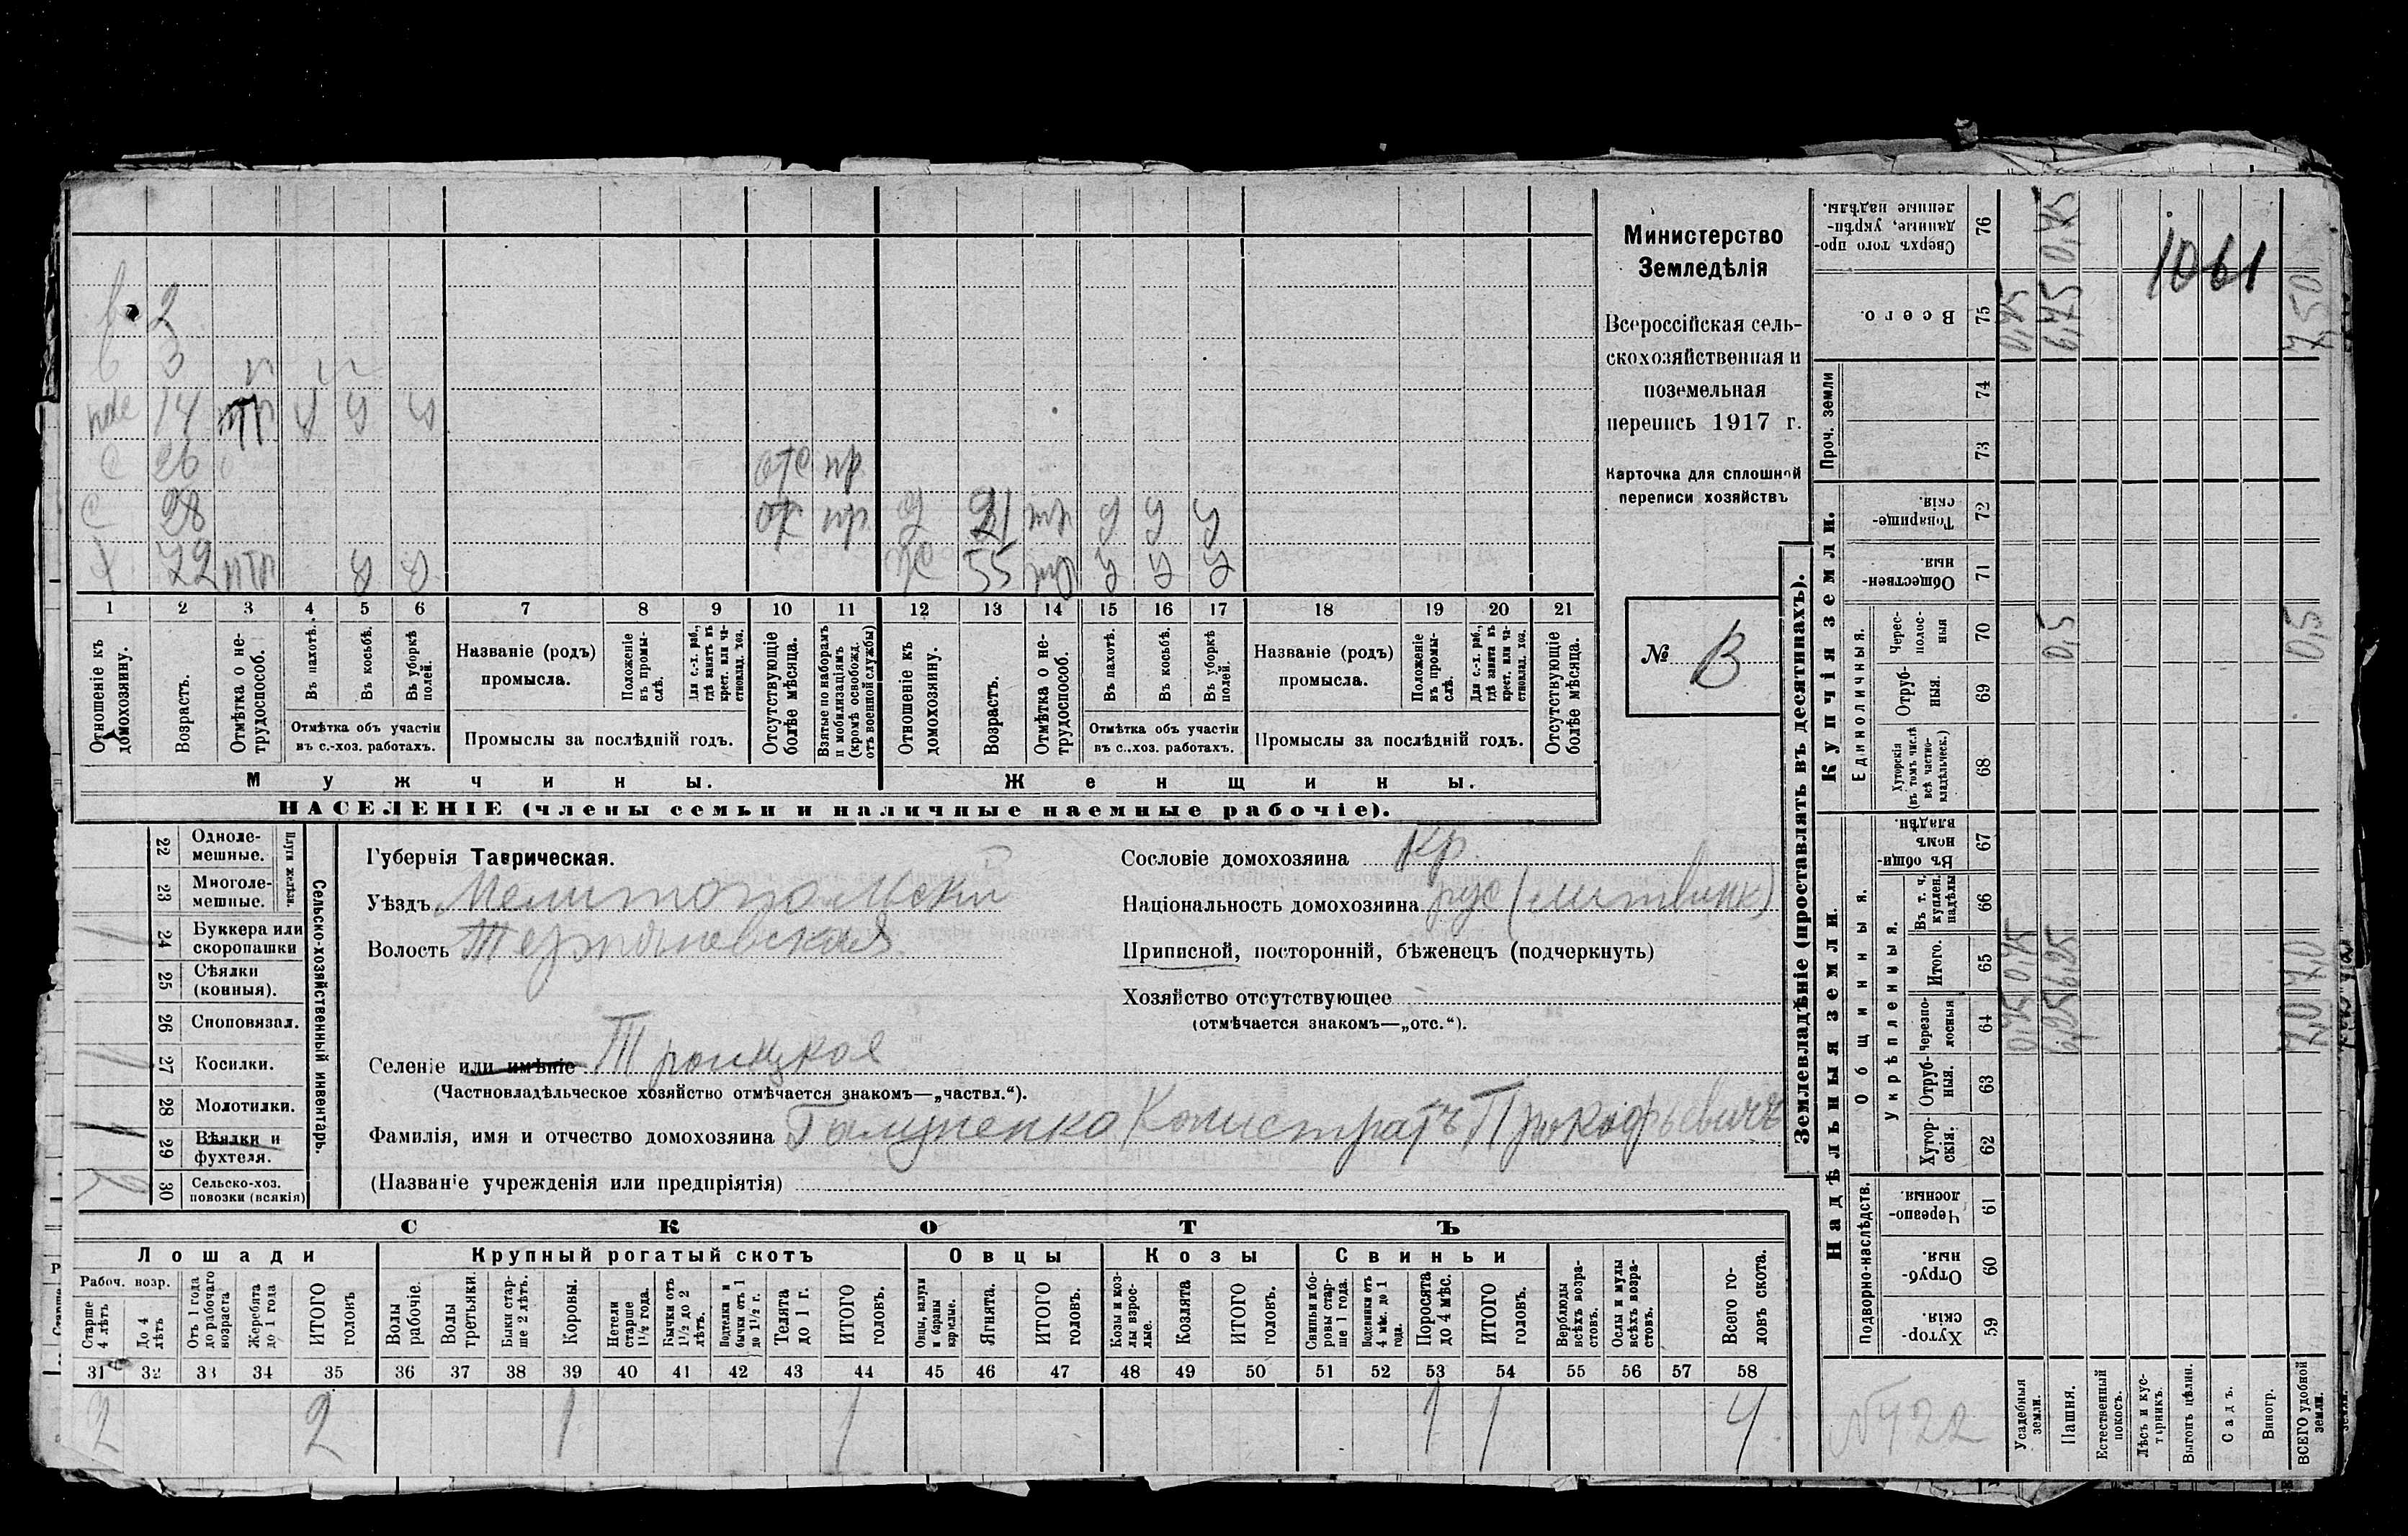 в 2
в 3 п
14 птп у у у
с 26 отс пр.
с 28 отс пр. 21 у у у
х 72 птп у у ж 55 у у у
1 2 3 4 5 6 7 8 9 10 11 12 13 14 15 16 17 18 19 20 21
Отношеніе къ домохозяину.
Возрастъ.
Отмѣтка о не-трудоспособ.
Въ пахотѣ.
Въ косьбѣ.
Въ уборкѣ полей.
Отмѣтка объ участіи въ с.-хоз. работахъ.
Названіе (родъ) промысла.
Положеніе въ промы-слѣ.
Для с.-х. раб., гдѣ занятъ въ крест. или ча-стновлад. хоз.
Промыслы за послѣдній годъ.
Отсутствующіе болѣе мѣсяца.
Взятые по наборамъ и мобилизаціямъ (кромѣ освобожд. отъ военной службы)
Отношеніе къ домохозяину.
Возрастъ.
Отмѣтка о не-трудоспособ.
Въ пахотѣ.
Въ косьбѣ.
Въ уборкѣ полей.
Отмѣтка объ участіи въ с..хоз. работахъ.
Названіе (родъ) промысла.
Положеніе въ промы-слѣ.
Для с.-х. раб., гдѣ занята въ крест. или ча-стновлад. хоз.
Промыслы за послѣдній годъ.
Отсутствующіе болѣе мѣсяца.
Мужчины. Женщины.
НАСЕЛЕНІЕ (члены семьи и наличные наемные рабочіе).
Министерство
Земледѣлія
Всероссійская сель-
скохозяйственная и
поземельная
перепись 1917 г.
Карточка для сплошной
переписи хозяйствъ
№ В
Сельско-хозяйственный инвентарь.
Плуги желѣзн.
22 Одноле-мешные.
23 Многоле-мешные.
24 Буккера или скоропашки 1
25 Сѣялки (конныя).
26 Сноповязал.
27 Косилки. 1
28 Молотилки.
29 Вѣялки и фухтеля. 1
30 Сельско-хоз. повозки (всякія) 2
Губернія Таврическая.
Уѣздъ Мелитопольскій
Волость Терпѣновская
Селеніе или имѣніе Троицкоя
(Частновладѣльческое хозяйство отмѣчается знакомъ—„частвл.“).
Фамилія, имя и отчество домохозяина Прокофьевичъ
(Названіе учрежденія или предпріятія)
Сословіе домохозяина Кр.
Національность домохозяина рус (литвинк)
Приписной, посторонній, бѣженецъ (подчеркнуть)
Хозяйство отсутствующее
(отмѣчается знакомъ—„отс.“).
СКОТЪ
Лошади Крупный рогатый скотъ Овцы Козы Свиньи
Рабоч. возр.
Старше 4 лѣтъ
До 4 лѣтъ
Отъ 1 года до рабочаго возраста
Жеребята до 1 года
ИТОГО головъ
Волы рабочіе.
Волы третьяки.
Быки стар-ше 2 лѣтъ.
Коровы.
Нетели старше 1½ года.
Бычки отъ 1½ до 2 лѣтъ.
Подтелки и бычки отъ 1 до 1½ г.
Телята до 1 г.
ИТОГО головъ.
Овцы, валухи и бараны взрослые.
Ягнята.
ИТОГО головъ.
Козы и коз-лы взрос-лые.
Козлята
ИТОГО головъ.
Свиньи и бо-ровы стар-ше 1 года.
Подсвинки отъ 4 мѣс. до 1 года.
Поросята до 4 мѣс.
ИТОГО головъ.
Верблюды всѣхъ возра-стовъ.
Ослы и мулы всѣхъ возра-стовъ.
Всего го-ловъ скота.
31 32 33 34 35 36 37 38 39 40 41 42 43 44 45 46 47 48 49 50 51 52 53 54 55 56 57 58
2 2 1 1 1 1 4
Землевладѣніе (проставлять въ десятинахъ).
Надѣльныя земли. Купчія земли. Проч. земли
Подворно-наслѣдств.
Общинныя.
Укрѣпленныя.
Единоличныя.
Сверхъ того про-данные, укрѣп-ленные надѣлы. 76 0,75
Всего. 75 0,75 6,75 7,50
74
73
Товарище-скія. 72
Обществен-ныя. 71
Черес-полос-ныя 70 0,5 0,5
Отруб-ныя. 69
Хуторскія (въ томъ числѣ всѣ частно-владѣльческ.) 68
Въ общи-номъ владѣн. 67
Въ т. ч. куплен. надѣлы 66
Итого. 65 0,75 6,25 7,0
Черезпо-лосныя 64 0,75 6,25 7,0
Отруб-ныя. 63
Хутор-скія. 62
Черезпо-лосныя. 61
Отруб-ныя. 60
Хутор-скія. 59
1061
№422
Усадебныя земли.
Пашня.
Естественный покосъ.
Лѣсъ и кус-тарникъ.
Выгонъ цѣлин.
Садъ.
Виногр.
ВСЕГО удобной земли.